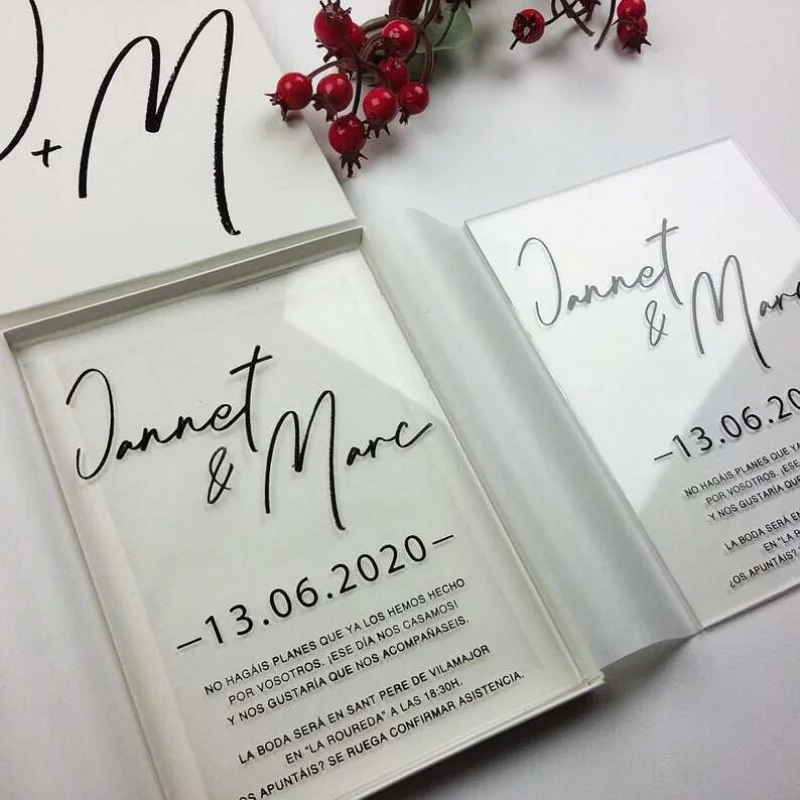 + M
Jannet
& Marc
–13.06.2020–
NO HAGÁIS PLANES QUE YA LOS HEMOS HECHO
POR VOSOTROS. ¡ESE DÍA NOS CASAMOS!
Y NOS GUSTARÍA QUE NOS ACOMPAÑASEIS.
LA BODA SERÁ EN SANT PERE DE VILAMAJOR
EN "LA ROUREDA" A LAS 18:30H.
¿OS APUNTÁIS? SE RUEGA CONFIRMAR ASISTENCIA.
Jannet
& Marc
–13.06.20
NO HAGÁIS PLANES QUE YA
POR VOSOTROS. ¡ESE
Y NOS GUSTARÍA QUE
LA BODA SERÁ EN
EN "LA
¿OS APUNTÁIS?